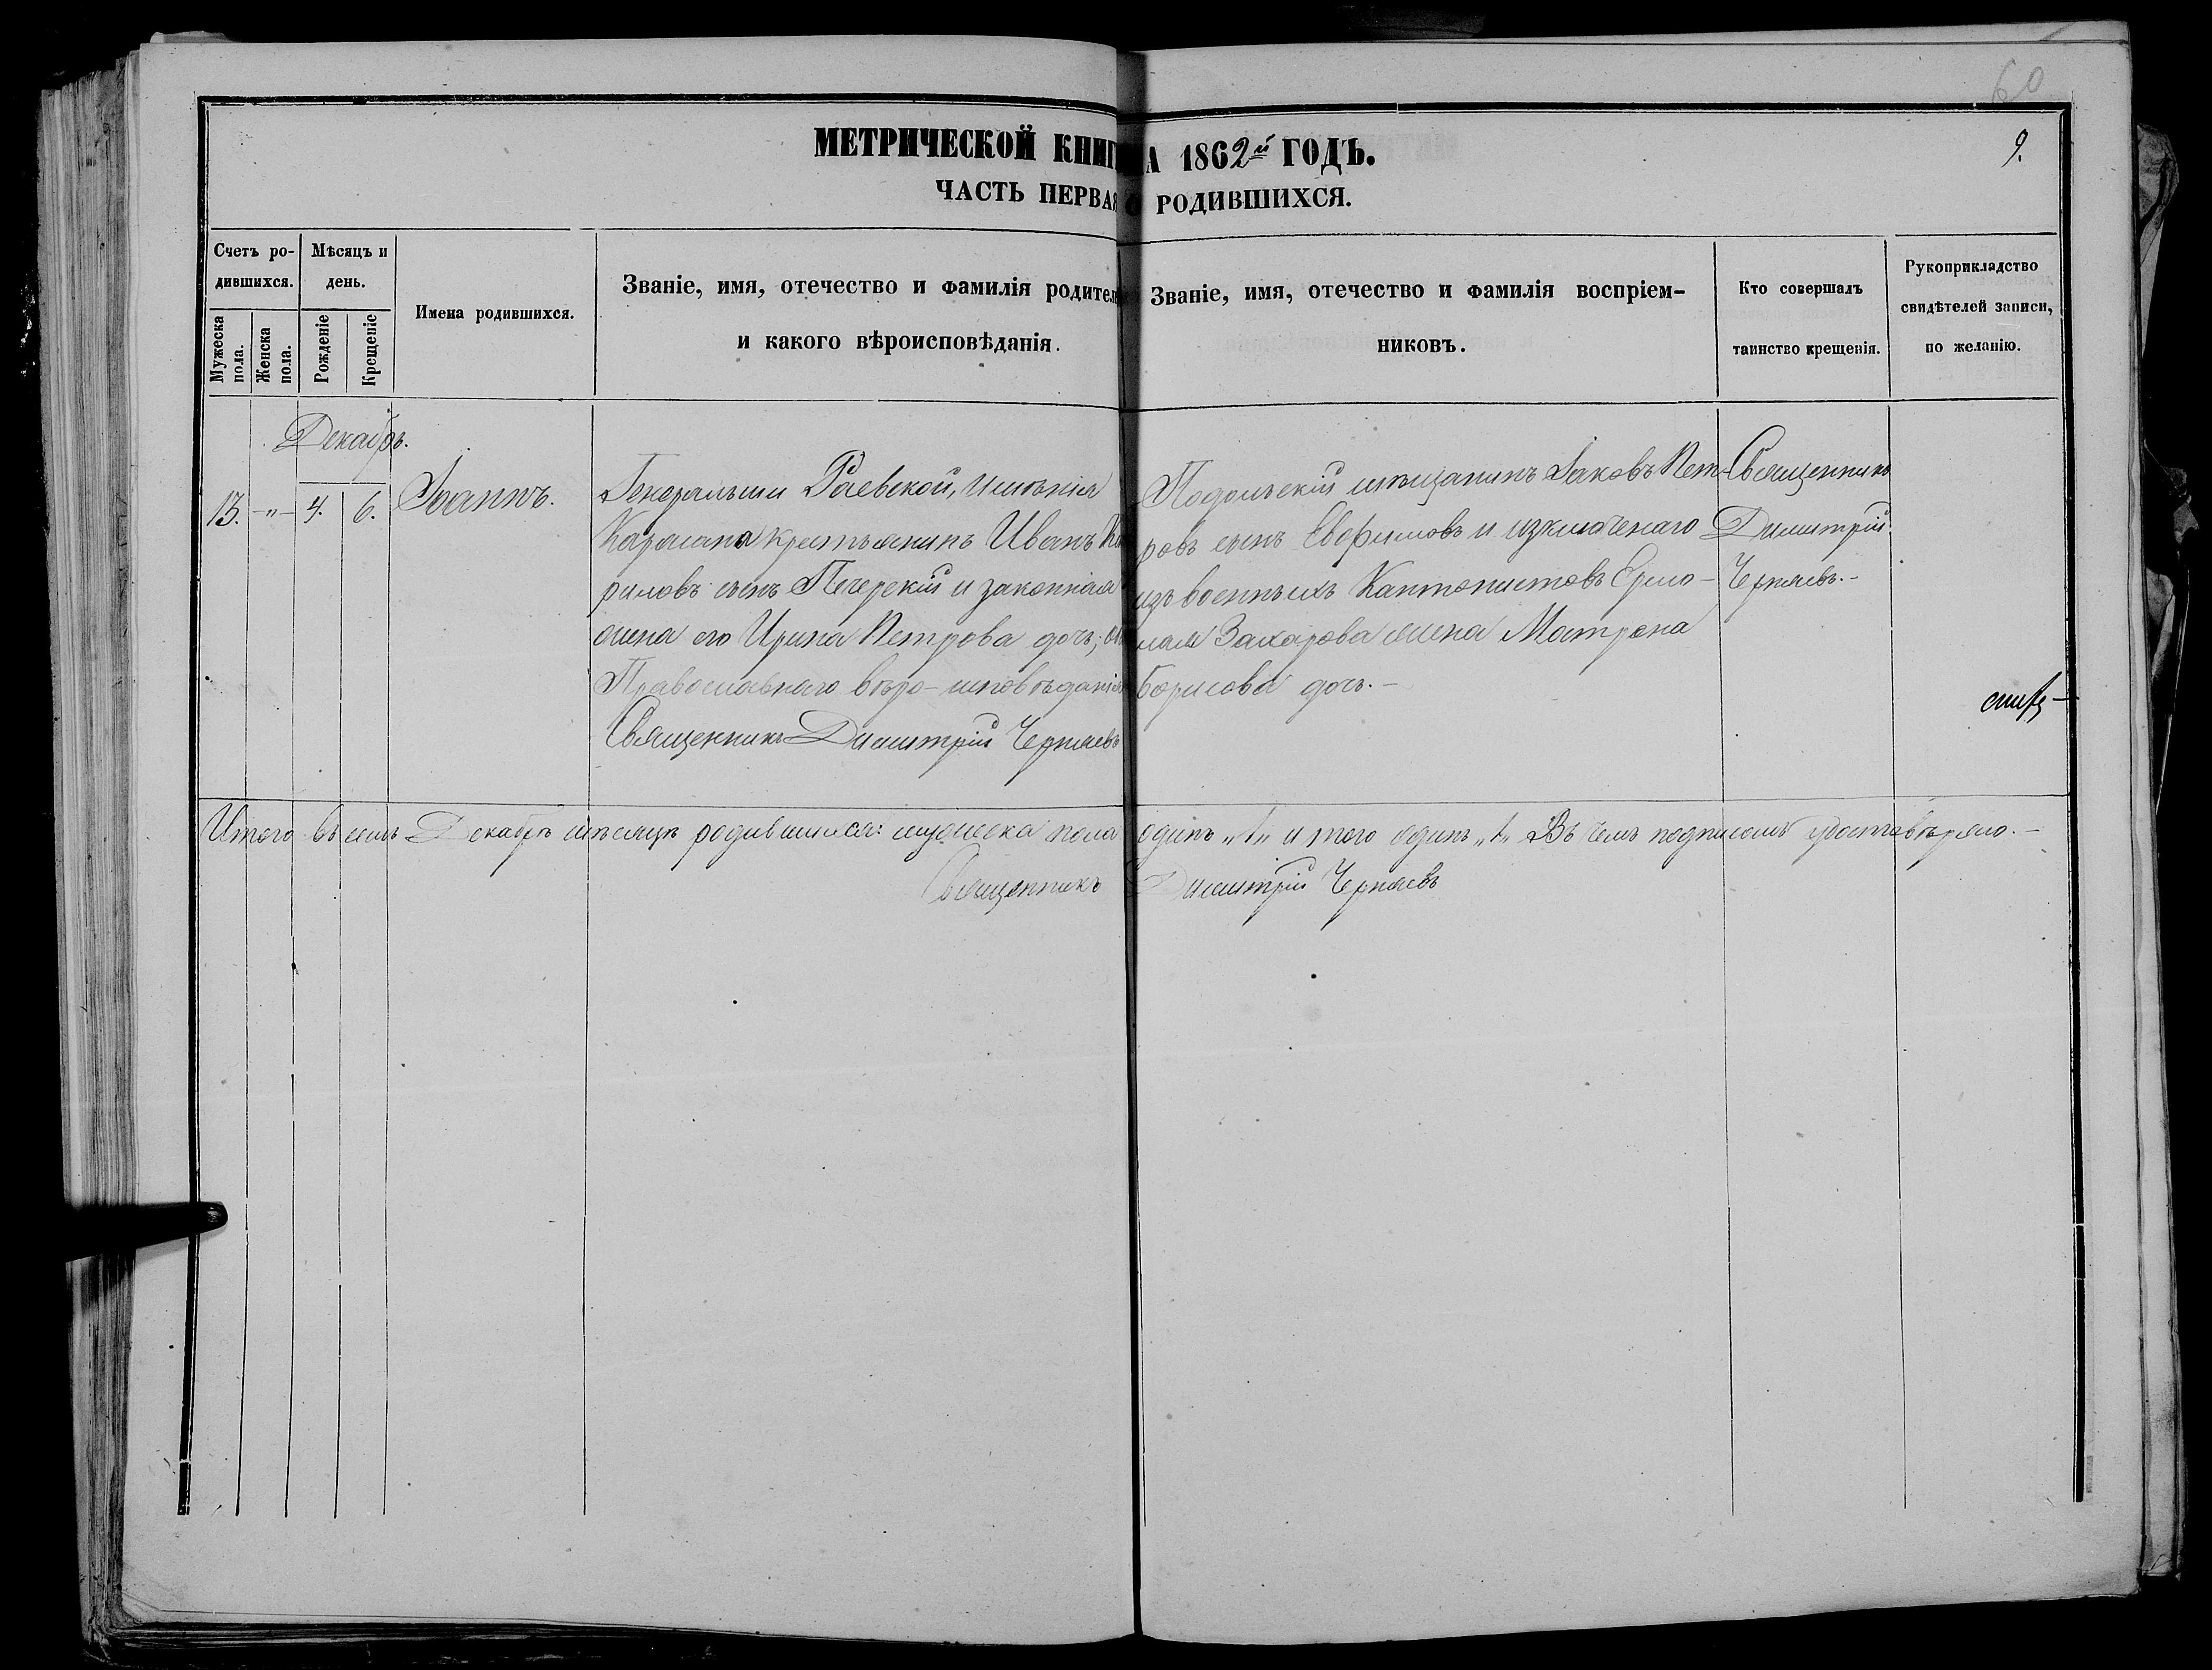 60
МЕТРИЧЕСКОЙ КНИГ А 1862й ГОДЪ.
9.
ЧАСТЬ ПЕРВАЯ О РОДИВШИХСЯ.
Счетъ ро-
дившихся.
Мужеска пола.
Женска пола.
Мѣсяцъ и
день.
Рожденіе
Крещеніе
Имена родившихся.
Званіе, имя, отечество и фамилія родител
и какого вѣроисповѣданія.
Званіе, имя, отечество и фамилія воспріем-
никовъ.
Кто совершалъ
таинство крещенія.
Рукоприкладство
свидѣтелей записи,
по желанію.
Декабрь.
13. -"- 4. 6. Іоаннъ.
Генеральши Раевской, имѣнія
Карасана крестьянинъ Иванъ Ки
риловъ сынъ Печерскій и законная
жена его Ирина Петрова дочь;
Православнаго вѣро-исповѣданія
Священникъ Димитрій Черняевъ
Подольскій мѣщанинъ Іаковъ Пет-
ровъ сынъ Евфимовъ и изключенаго
изъ военныхъ Кантонистовъ Ермо-
лая Захарова жена Матрона
Борисова дочь.-
Священникъ
Димитрій
Черняевъ.-
Итого въ семъ Декабрѣ мѣсяцѣ родившихся: мужеска пола одинъ „1„ и того одинъ „1„ Въ чемъ подписомъ удостовѣряю.-
Священникъ Димитрій Черняевъ